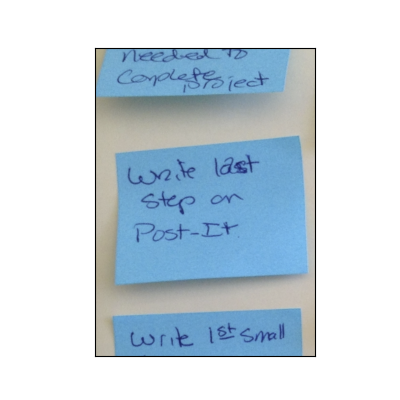 needed to
Complete
project
Write last
Step on
Post-It
Write 1st Small